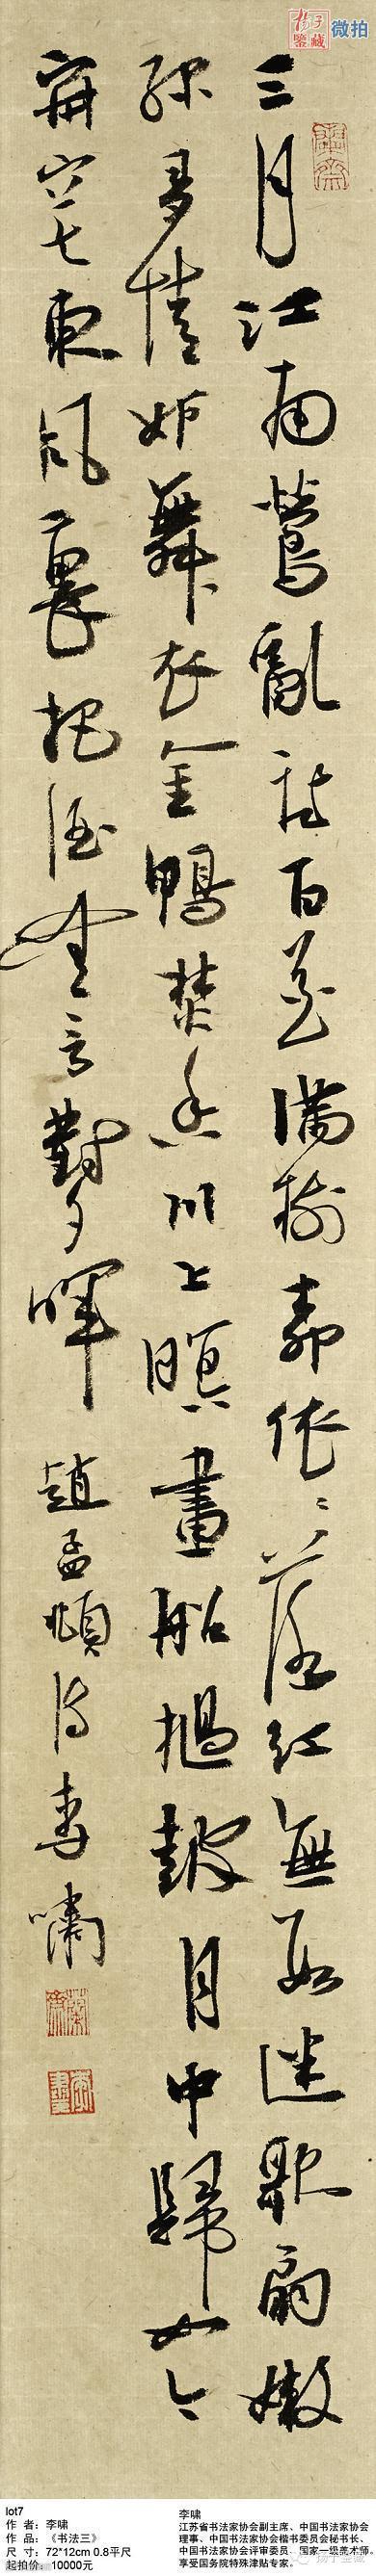 杨子鉴藏 微拍
三月江南鶯亂飛百花滿樹柳依〻落紅無數迷歌扇嫩
綠多情妒舞衣金鴨焚香川上暝畫船撾鼓月中歸如今
寂寞東風裏把酒無言對夕暉 趙孟頫詩李嘯
lot7
作 者：李啸
作 品：《书法三》
尺 寸：72*12cm 0.8平尺
起拍价：10000元
李啸
江苏省书法家协会副主席、中国书法家协会
理事、中国书法家协会楷书委员会秘书长、
中国书法家协会评审委员、国家一级美术师。
享受国务院特殊津贴专家。